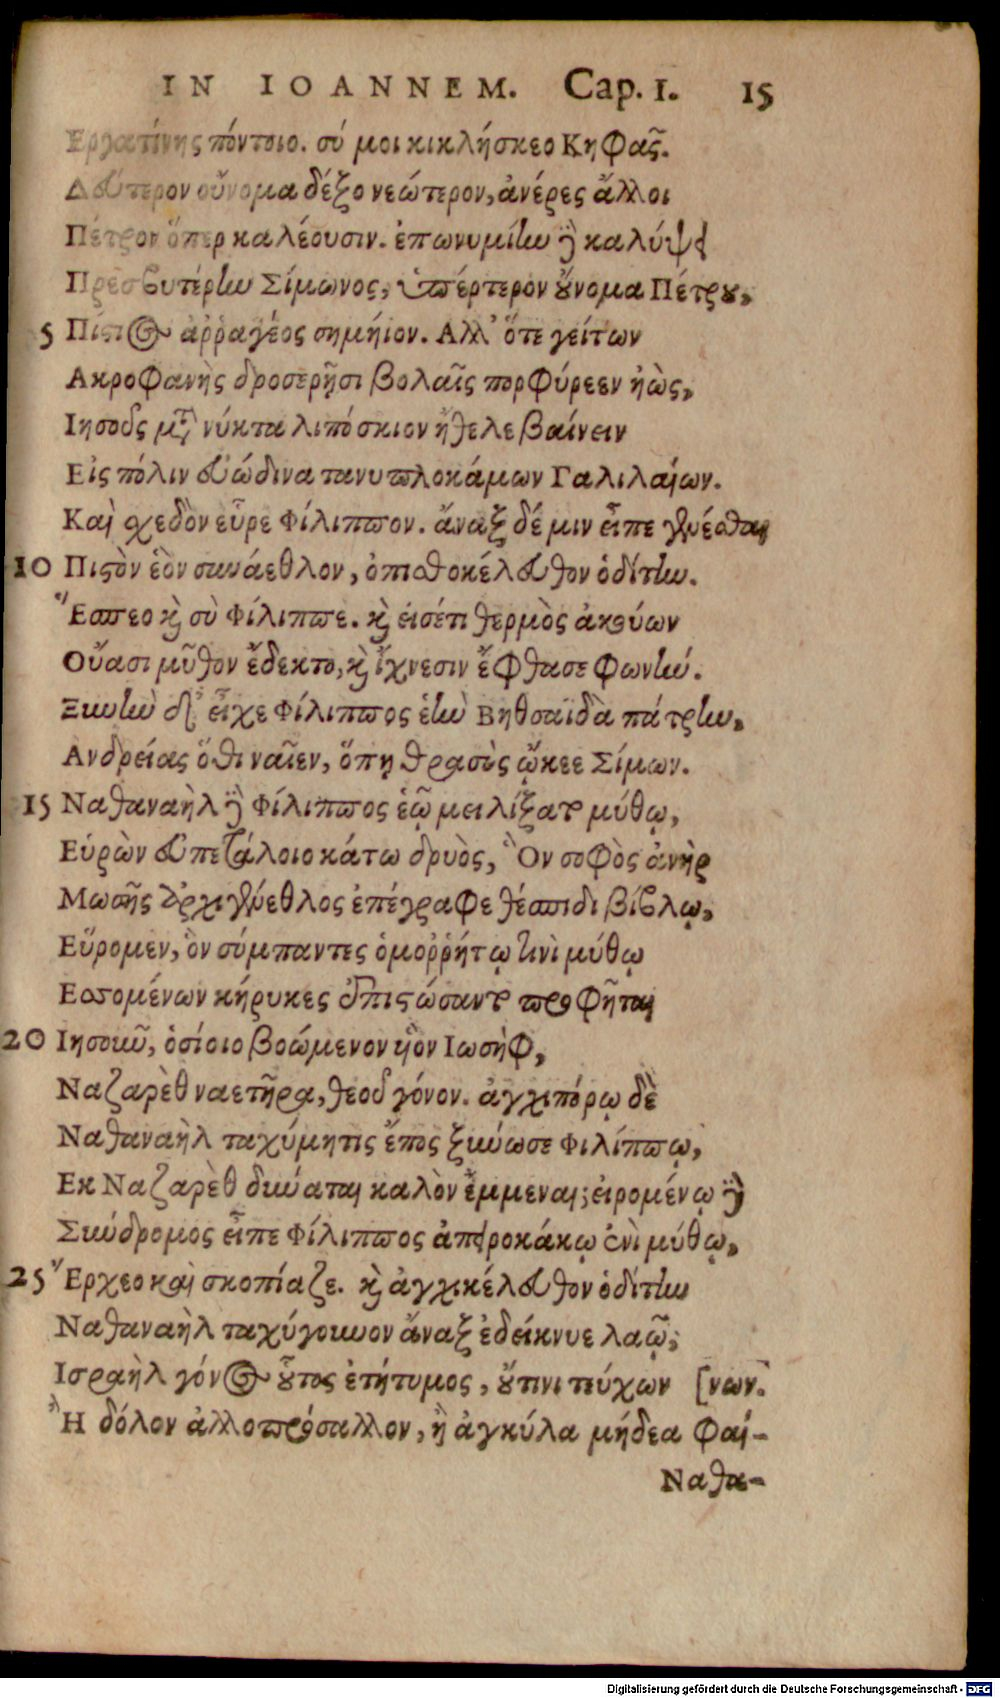 IN IOANNEM. Cap. I. 15
Εργατίνης πόντοιο. σύ μοι κικλήσκεο Κηφᾶς.
Δεύτερον οὔνομα δέξο νεώτερον, ἀνέρες ἄλλοι
Πέτρον ὅπερ καλέουσιν. ἐπωνυμίην ἢ καλύψει
Πρεσβυτέρην Σίμωνος, ὑπέρτερον οὔνομα Πέτρου,
5 Πίστιος ἀῤῥαγέος σημήιον. Αλλ' ὅτε γείτων
Ακροφανὴς δροσερῇσι βολαῖς πορφύρεεν ἠὼς,
Ιησοῦς μετὰ νύκτα λιπόσκιον ἤθελε βαίνειν
Εἰς πόλιν εὐώδινα τανυπλοκάμων Γαλιλαίων.
Καὶ σχεδὸν εὗρε Φίλιππον. ἄναξ δέ μιν εἶπε γενέσθαι
10 Πιστὸν ἑὸν συνάεθλον, ὀπισθοκέλευθον ὁδίτην.
Ἕσπεο καὶ σὺ Φίλιππε. καὶ εἰσέτι θερμὸς ἀκούων
Οὔασι μῦθον ἔδεκτο, καὶ ἴχνεσιν ἔφθασε φωνήν.
Ξυνὴν δ' εἶχε Φίλιππος ἑὴν Βηθσαϊδὰ πάτρην,
Ανδρείας ὅθι ναῖεν, ὅπῃ θρασὺς ᾤκεε Σίμων.
15 Ναθαναὴλ δὲ Φίλιππος ἑῷ μειλίξατο μύθῳ,
Εὑρὼν εὐπετάλοιο κάτω δρυὸς, Ὃν σοφὸς ἀνὴρ
Μωσῆς ἀρχιγένεθλος ἐπέγραφε θέσπιδι βίβλῳ,
Εὕρομεν, ὃν σύμπαντες ὁμοῤῥήτῳ τινὶ μύθῳ
Εσσομένων κήρυκες ἐπιστώσαντο προφῆται
20 Ιησοῦν, ὁσίοιο βοώμενον υἱὸν Ιωσὴφ,
Ναζαρὲθ ναετῆρα, θεοῦ γόνον. ἀγχιπόρῳ δὲ
Ναθαναὴλ ταχύμητις ἔπος ξυνέωσε Φιλίππῳ,
Εκ Ναζαρὲθ δύναται καλὸν ἔμμεναι; εἰρομένῳ δὲ
Σύνδρομος εἶπε Φίλιππος ἀπειροκάκῳ ἑνὶ μύθῳ,
25 Ἔρχεο καὶ σκοπίαζε. καὶ ἀγχικέλευθον ὁδίτην
Ναθαναὴλ ταχύγουνον ἄναξ ἐδείκνυε λαῷ,
Ισραὴλ γόνος οὗτος ἐτήτυμος, οὔτινι τεύχων [νων.
Ἢ δόλον ἀλλοπρόσαλλον, ἢ ἀγκύλα μήδεα φαί-
Ναθα-
Digitalisierung gefördert durch die Deutsche Forschungsgemeinschaft - DFG